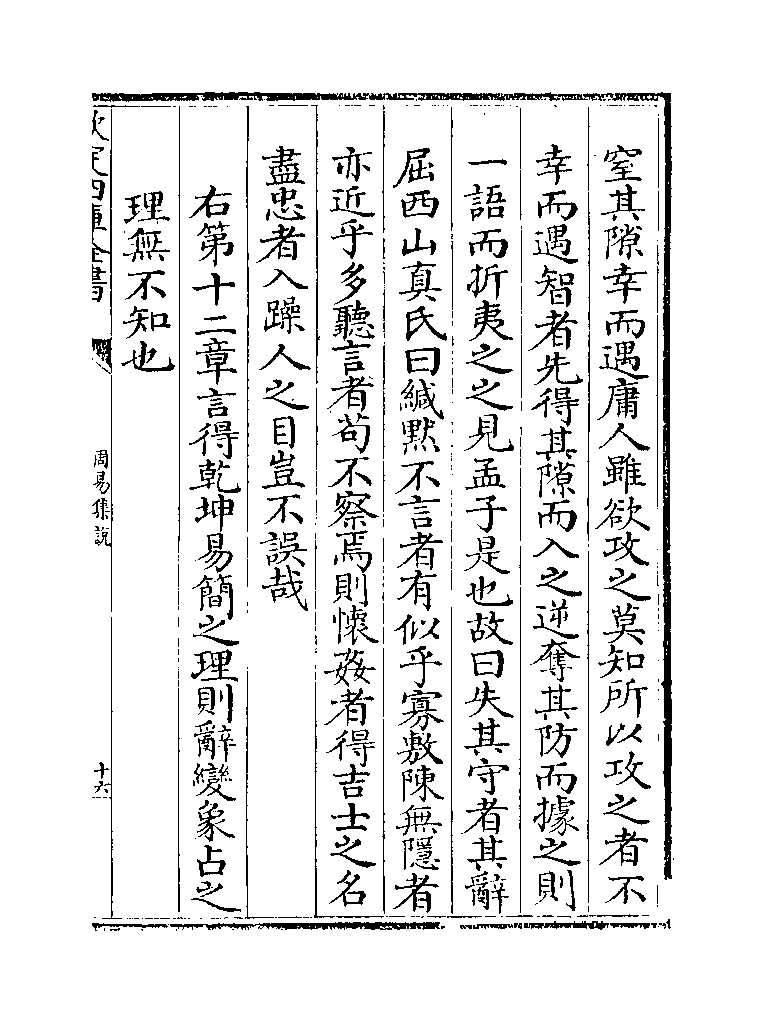 窒其隙幸而遇庸人雖欲攻之莫知所以攻之者不
幸而遇智者先得其隙而入之逆奪其防而據之則
一語而折夷之之見孟子是也故曰失其守者其辭
屈西山真氏曰緘黙不言者有似乎寡敷陳無隱者
亦近乎多聽言者茍不察焉則懐姦者得吉士之名
盡忠者入躁人之目豈不誤哉
右第十二章言得乾坤易簡之理則辭變象占之
理無不知也
欽定四庫全書
周易集說
十六